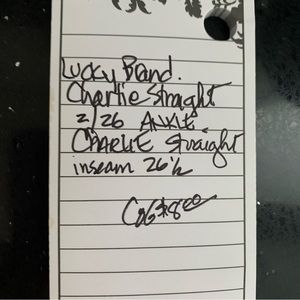 Lucky Brand.
Charlie Straight
2/26 ANKLE.
CHARLIE Straight
inseam 26 1/2
$8.00